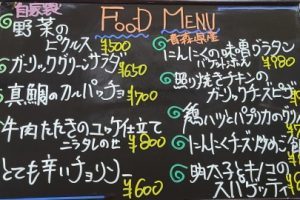 FOOD MENU
自家製
野菜の
ピクルス ¥500
ガーリックグリーンサラダ ¥650
真鯛のカルパッチョ ¥700
牛肉たたきのユッケ仕立て
ニラタレのせ ¥800
とても辛いチョリソー ¥600
青森県産
にんにくの味噌グラタン
バケット ¥980
照り焼きチキンの
ガーリックチーズピザ
鶏ハツとパプリカの
にんにくチーズ炒めご飯
明太子とキノコの
スパゲッティ